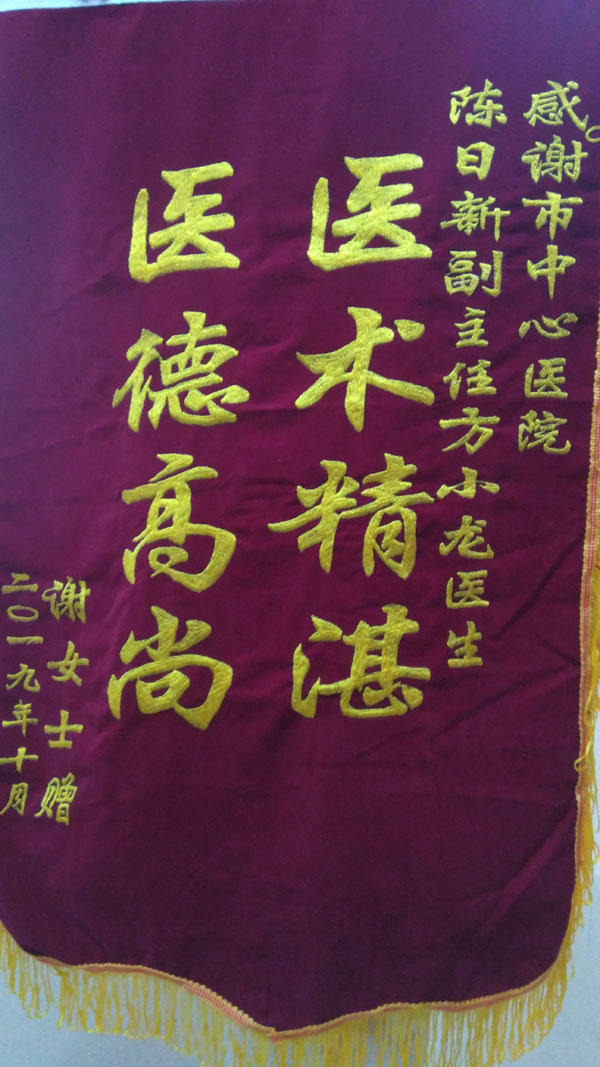 感谢市中心医院
陈日新副主任方小龙医生
医术精湛
医德高尚
谢女士赠
二〇一九年十月